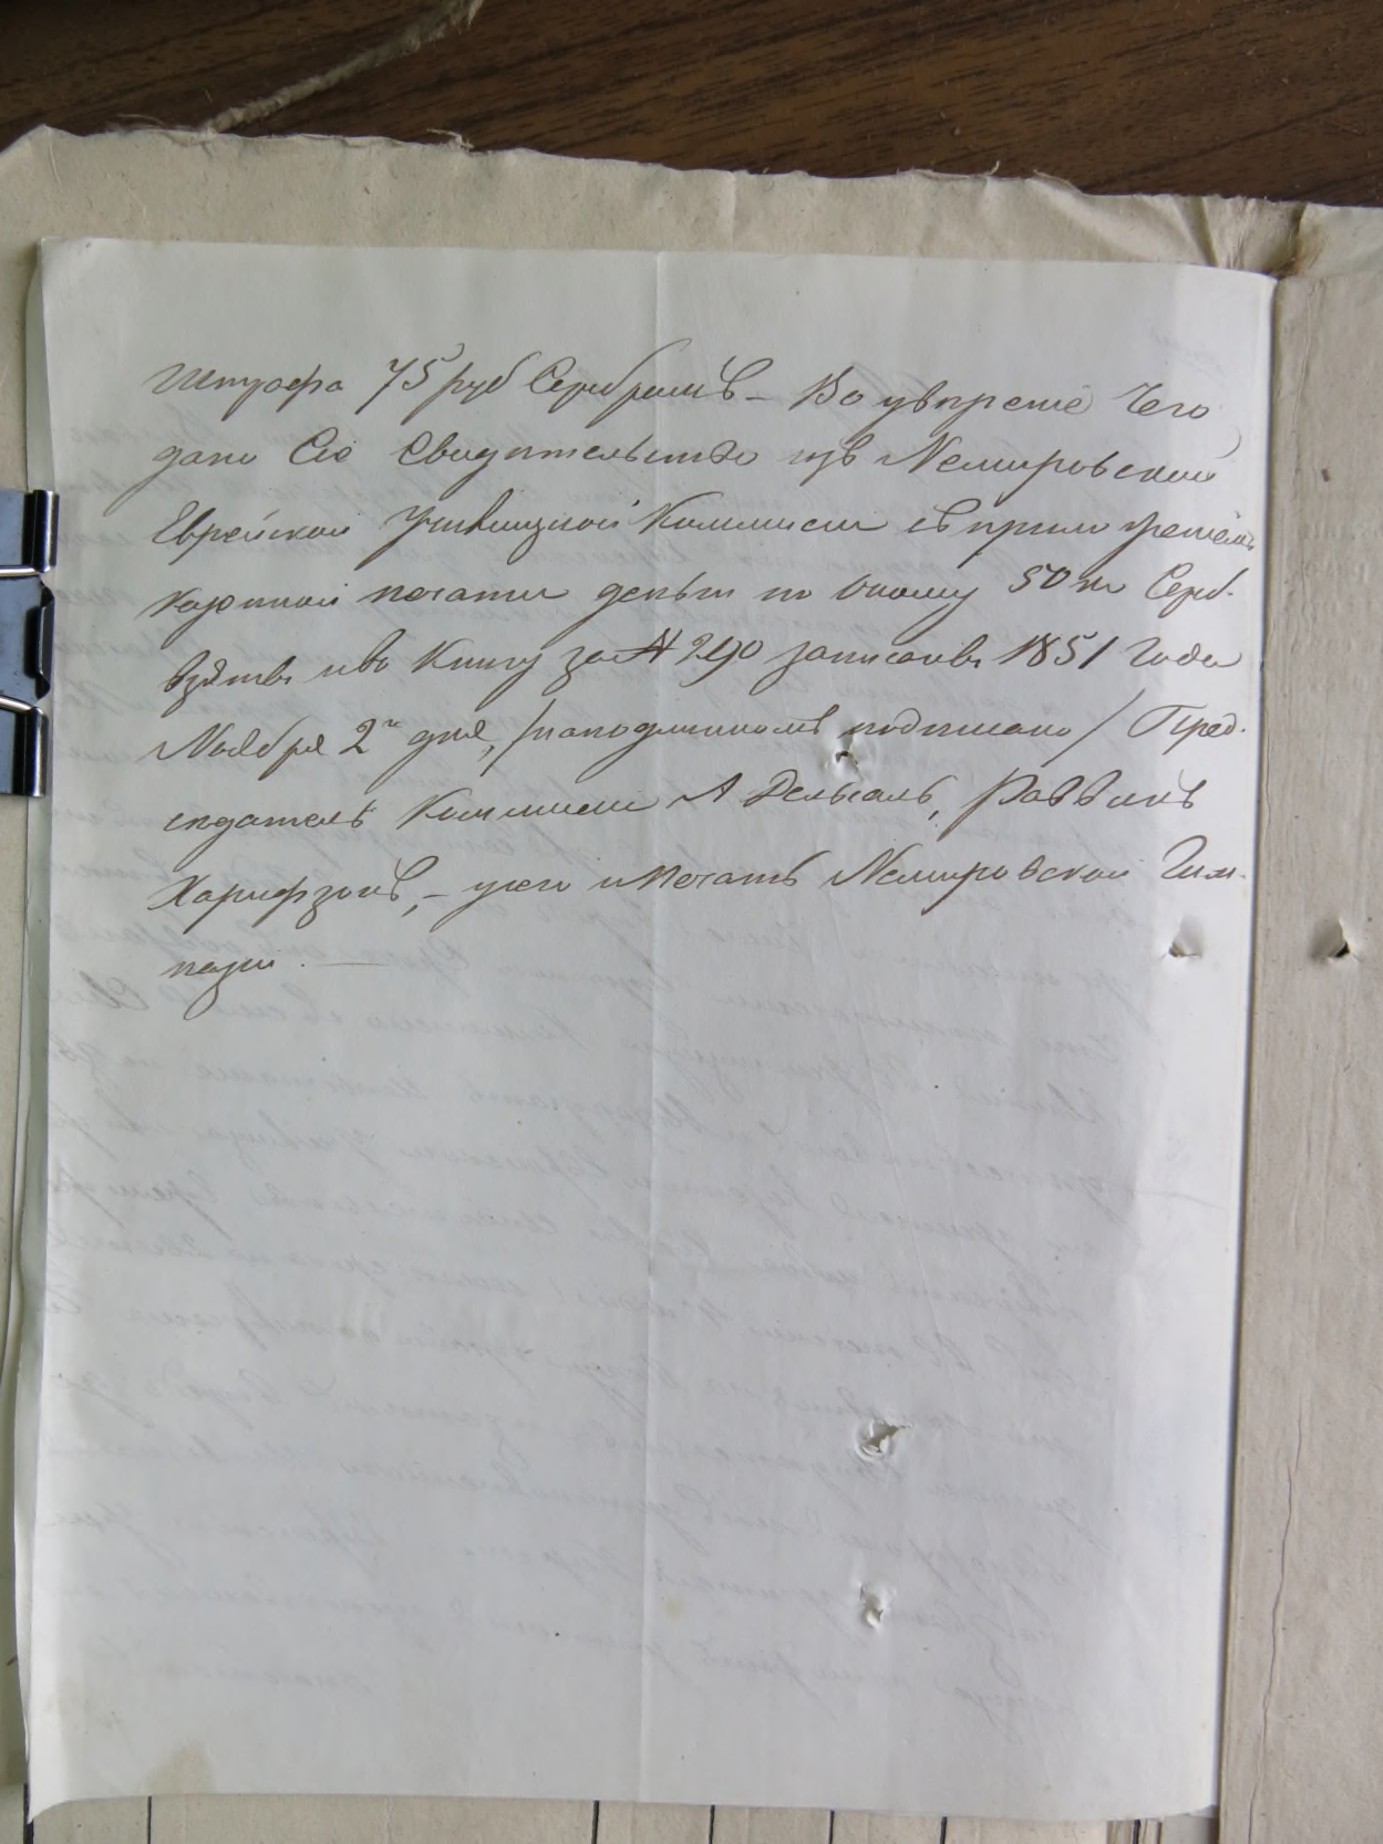 Штрафа 75 руб Серебромъ – Во уверение Чего
дано Сие Свидетельство изъ Немировской
Еврейской Училищной Коммисии съ приложением
казенной печати деньги по оному 50 ко Сереб.
взяты и въ Книгу за № 290 записаны 1851 Года
Ноября 2го дня, /на подлинномъ подписано/ Пред-
седатель Коммисии А Дельсаль, Раввинъ
Харифзонъ, – у сего и Печать Немировской Гим-
назии. —